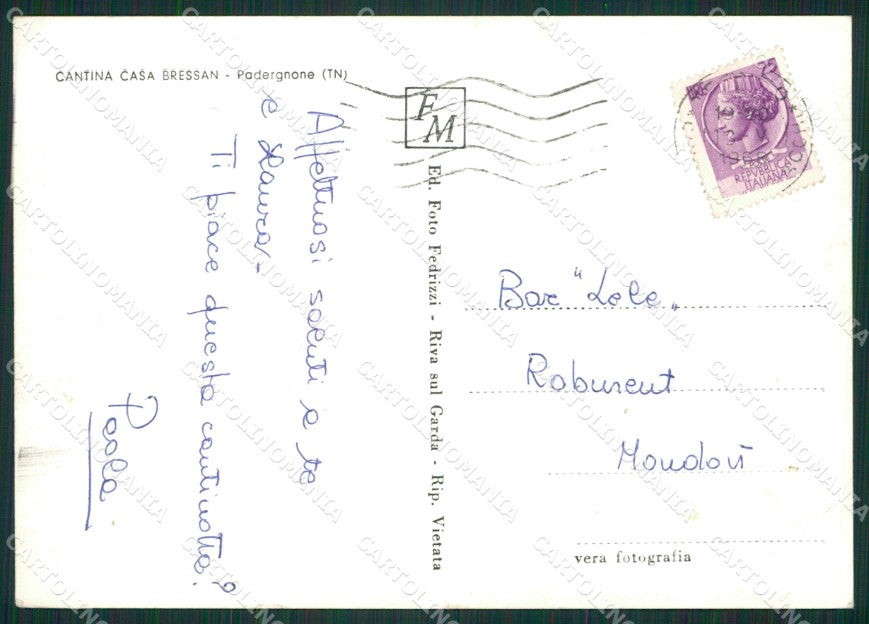 CANTINA ČAŠA BRESSAN - Padergnone (TN)
Affettuosi saluti a te
e Laura.
Ti piace questa cantinotta?
Paola
FM
Ed. Foto Fedrizzi - Riva sul Garda - Rip. Vietata
LIRE
REPVBBLICA
ITALIANA
Bar "Lele"
Roburent
Mondovì
vera fotografia
CARTOLINOMANIA